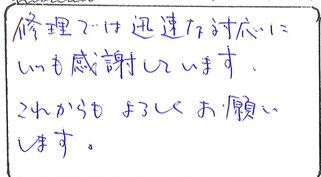 修理では迅速な対応に
いつも感謝しています。
これからもよろしくお願い
します。